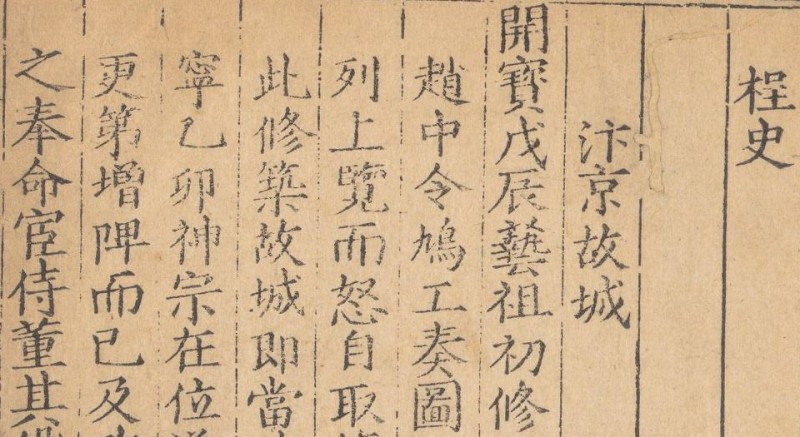 桯史
汴京故城
開寶戊辰藝祖初修
趙中令鳩工奏圖
列上覽而怒自取
此修築故城即當
寧乙卯神宗在位
更第增陴而已及
之奉命宦侍董其